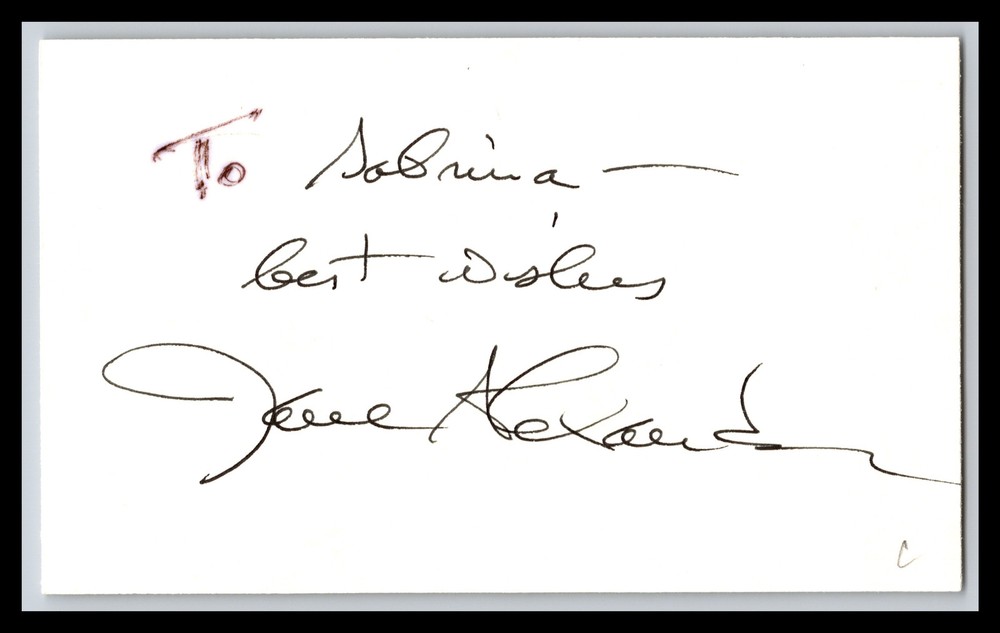 To Sabrina —
best wishes
Jane Alexander
c